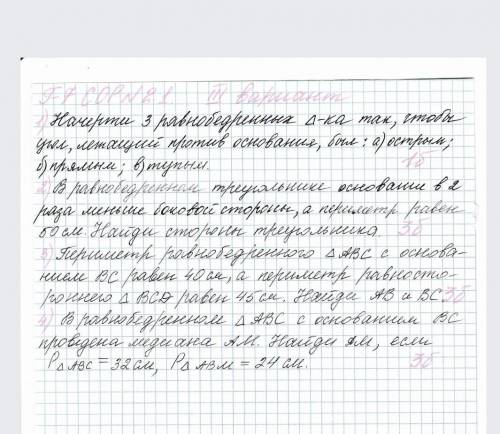 Г-7 СОР №2.1 III вариант
1) Начерти 3 равнобедренных Δ-ка так, чтобы
угол, лежащий против основания, был: а) острым;
б) прямым; в) тупым. 1б
2) В равнобедренном треугольнике основание в 2
раза меньше боковой стороны, а периметр равен
50 см. Найди стороны треугольника. 3б
3) Периметр равнобедренного Δ ABC с основа-
нием BC равен 40 см, а периметр равносто-
роннего Δ BCD равен 45 см. Найди AB и BC 3б
4) В равнобедренном Δ ABC с основанием BC
проведена медиана AM. Найди AM, если
P Δ ABC = 32 см, P Δ ABM = 24 см. 3б